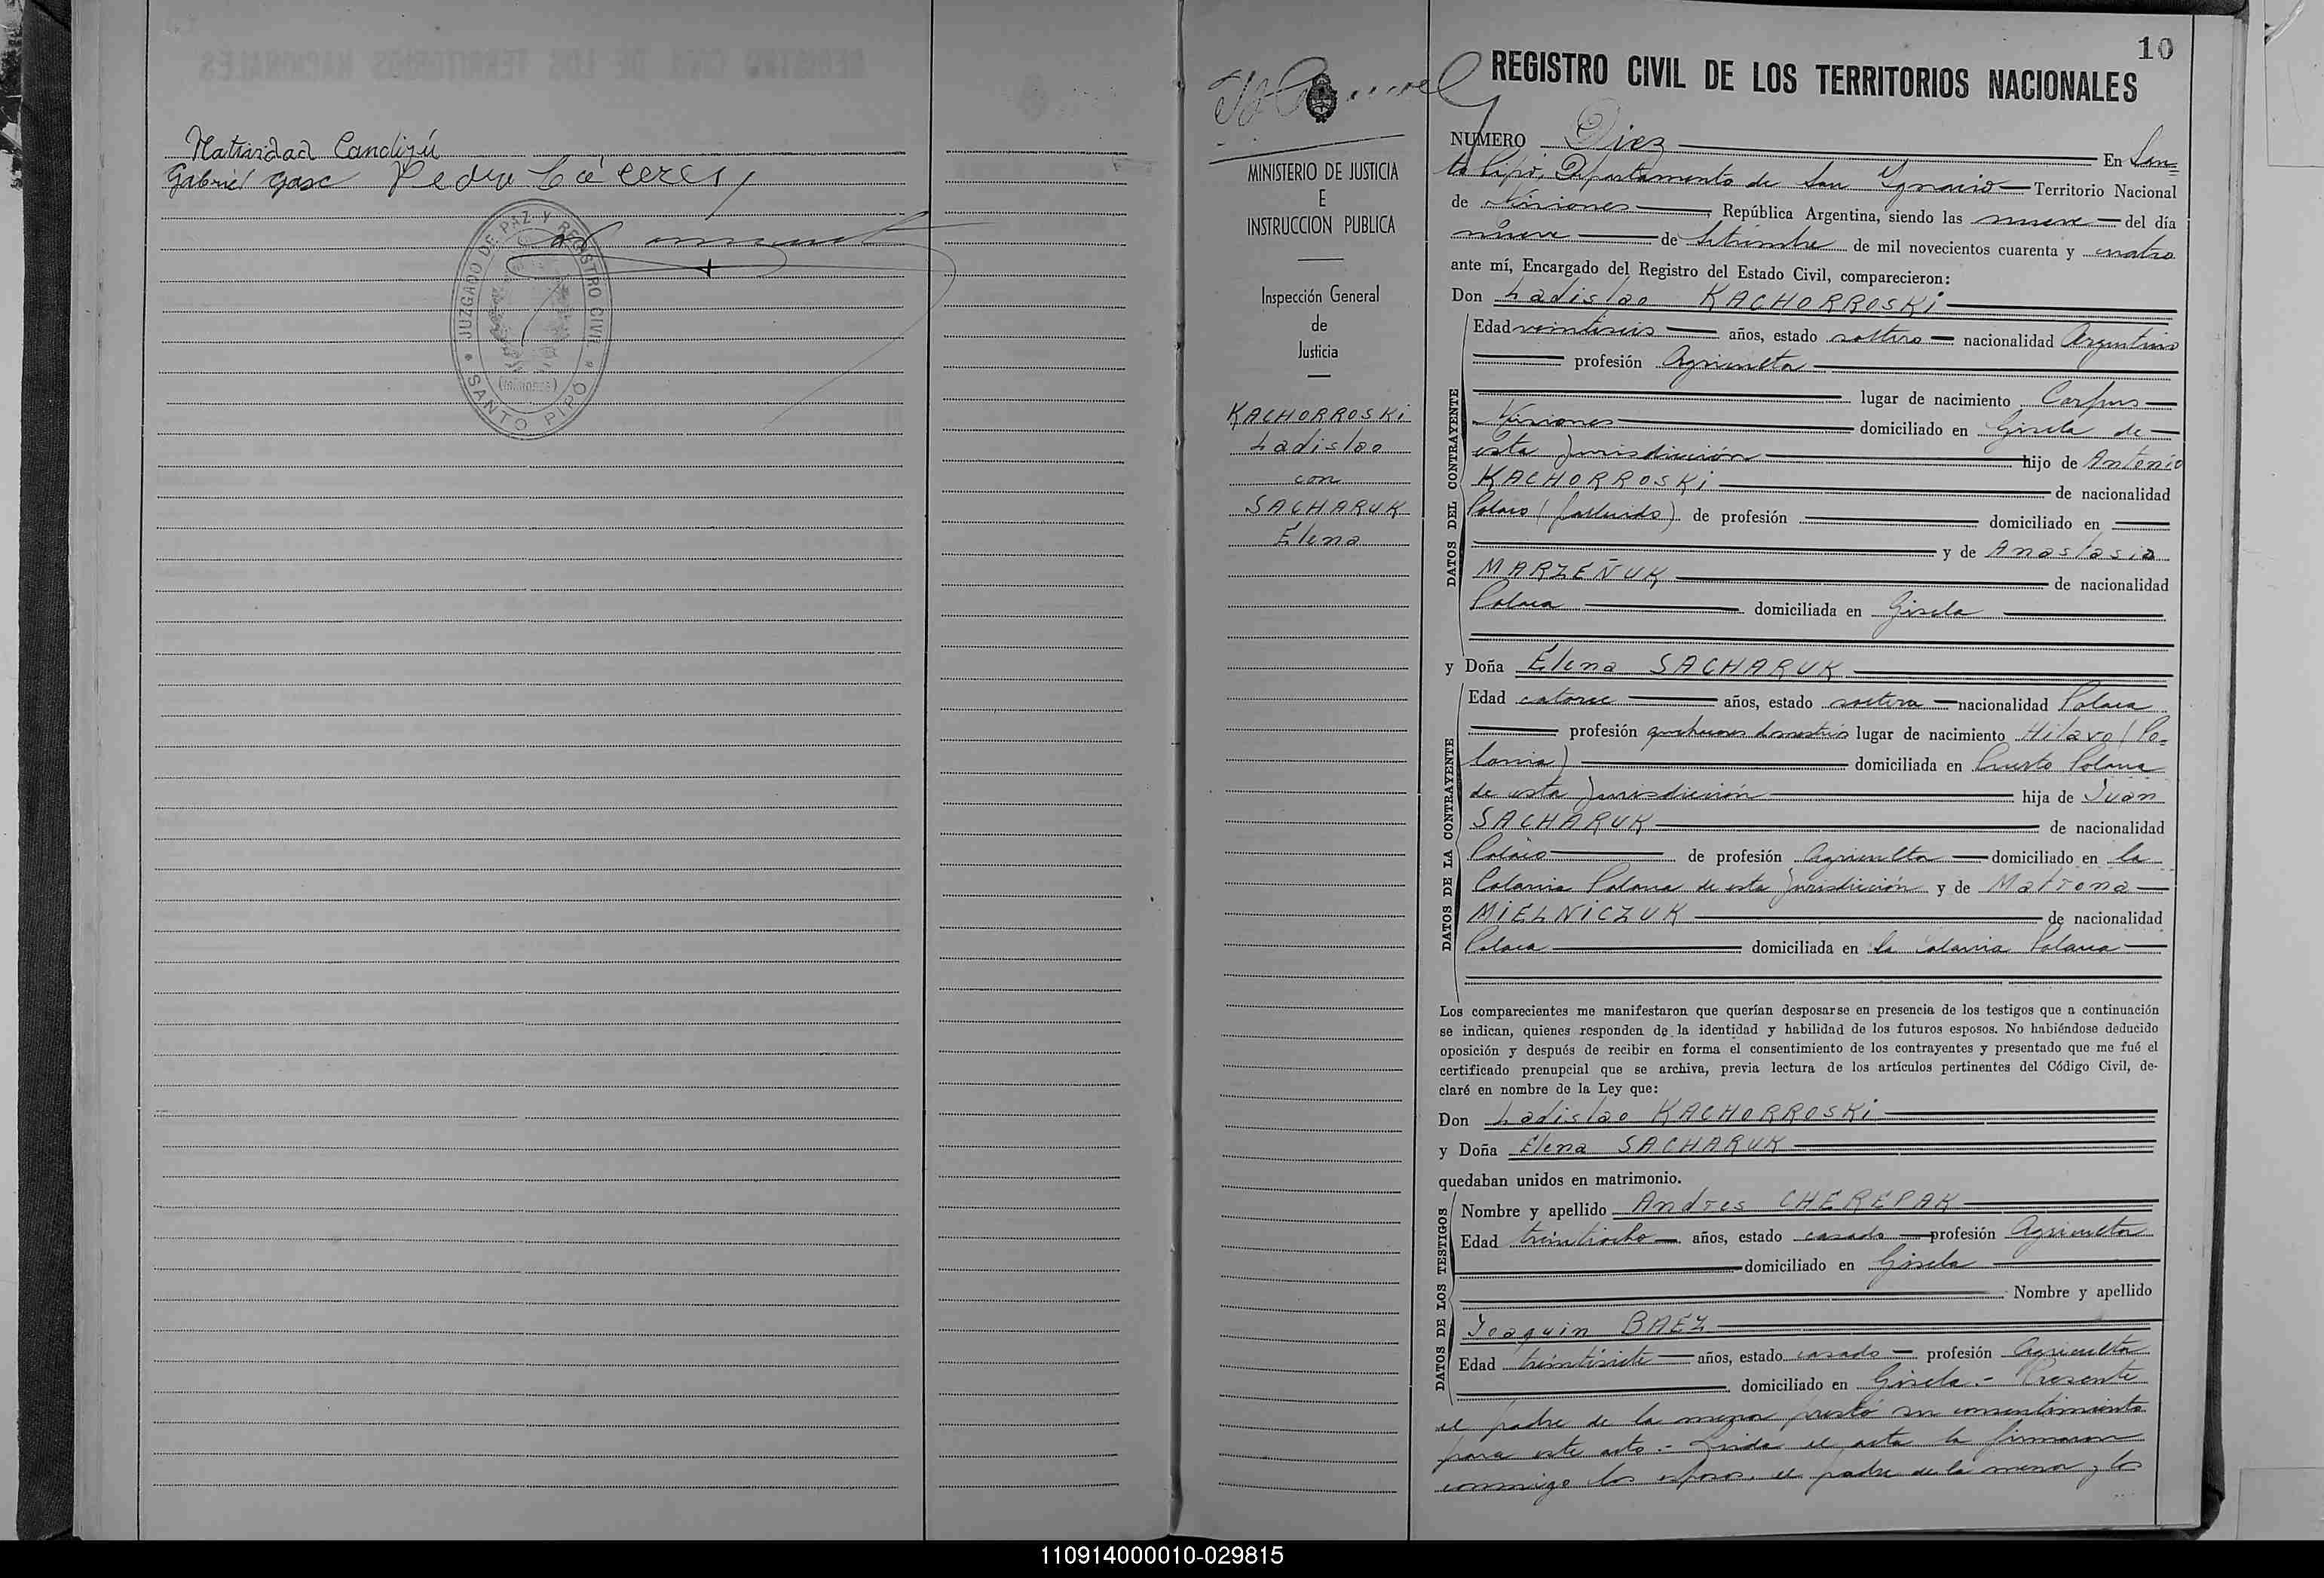 Natividad Candizú
Gabriel Gasc Pedro Cáceres
JUZGADO DE PAZ Y REGISTRO CIVIL
(Misiones)
SANTO PIPÓ
10
REGISTRO CIVIL DE LOS TERRITORIOS NACIONALES
MINISTERIO DE JUSTICIA
E
INSTRUCCION PUBLICA
Inspección General
de
Justicia
KACHORROSKi
Ladislao
con
SACHARUK
Elena
NUMERO Diez En San=
to Pipó, Departamento de San Ygnacio Territorio Nacional
de Misiones, República Argentina, siendo las nueve del día
nueve de Setiembre de mil novecientos cuarenta y cuatro
ante mí, Encargado del Registro del Estado Civil, comparecieron:
Don Ladislao KACHORROSKi
DATOS DEL CONTRAYENTE
Edad veintiseis años, estado soltero nacionalidad Argentino
profesión Agricultor
lugar de nacimiento Corpus
Misiones domiciliado en Gisela de
esta Jurisdicción hijo de Antonio
KACHORROSKi de nacionalidad
Polaco (fallecido) de profesión domiciliado en
y de Anastasia
MARZEÑUK de nacionalidad
Polaca domiciliada en Gisela
y Doña Elena SACHARUK
DATOS DE LA CONTRAYENTE
Edad catorce años, estado soltera nacionalidad Polaca
profesión quehaceres domésticos lugar de nacimiento Hilavo (Po=
lonia) domiciliada en Puerto Polana
de esta Jurisdicción hija de Juan
SACHARUK de nacionalidad
Polaco de profesión Agricultor domiciliado en la
Colonia Polana de esta Jurisdicción y de Matrona
MiELNiCZUK de nacionalidad
Polaca domiciliada en la Colonia Polana
Los comparecientes me manifestaron que querían desposarse en presencia de los testigos que a continuación
se indican, quienes responden de la identidad y habilidad de los futuros esposos. No habiéndose deducido
oposición y después de recibir en forma el consentimiento de los contrayentes y presentado que me fué el
certificado prenupcial que se archiva, previa lectura de los artículos pertinentes del Código Civil, de-
claré en nombre de la Ley que:
Don Ladislao KACHORROSKi
y Doña Elena SACHARUK
quedaban unidos en matrimonio.
DATOS DE LOS TESTIGOS
Nombre y apellido Andres CHEREPAK
Edad treintiocho años, estado casado profesión Agricultor
domiciliado en Gisela
Nombre y apellido
Joaquin BAEZ
Edad treintisiete años, estado casado profesión Agricultor
domiciliado en Gisela.- Presente
el padre de la menor prestó su consentimiento
para este acto.- Leida el acta la firmaron
conmigo los esposos, el padre de la menor y los
110914000010-029815